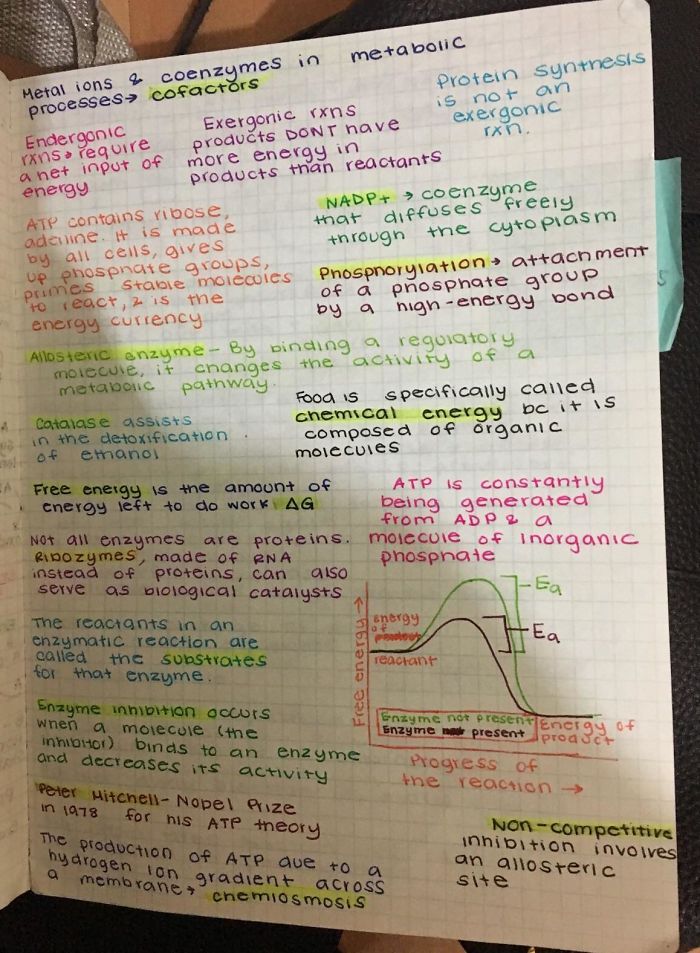 Metal ions & coenzymes in metabolic
processes → cofactors
Protein synthesis
is not an
exergonic
rxn.
Endergonic
rxns → require
a net input of
energy
Exergonic rxns
products DONT have
more energy in
products than reactants
NADP+ → coenzyme
that diffuses freely
through the cytoplasm
ATP contains ribose,
adenine. It is made
by all cells, gives
up phosphate groups,
primes stable molecules
to react, & is the
energy currency
Phosphorylation → attachment
of a phosphate group
by a high-energy bond
Allosteric enzyme - By binding a regulatory
molecule, it changes the activity of a
metabolic pathway.
Food is specifically called
chemical energy bc it is
composed of organic
molecules
Catalase assists
in the detoxification
of ethanol
Free energy is the amount of
energy left to do work ΔG
ATP is constantly
being generated
from ADP & a
molecule of inorganic
phosphate
Not all enzymes are proteins.
Ribozymes, made of RNA
instead of proteins, can also
serve as biological catalysts
The reactants in an
enzymatic reaction are
called the substrates
for that enzyme.
Free energy →
energy
of
reactant
Ea
Ea
Enzyme not present
Enzyme present
Energy of
product
Progress of
the reaction →
Enzyme inhibition occurs
when a molecule (the
inhibitor) binds to an enzyme
and decreases its activity
Peter Mitchell - Nobel Prize
in 1978 for his ATP theory
The production of ATP due to a
hydrogen ion gradient across
a membrane → chemiosmosis
Non-competitive
inhibition involves
an allosteric
site
S